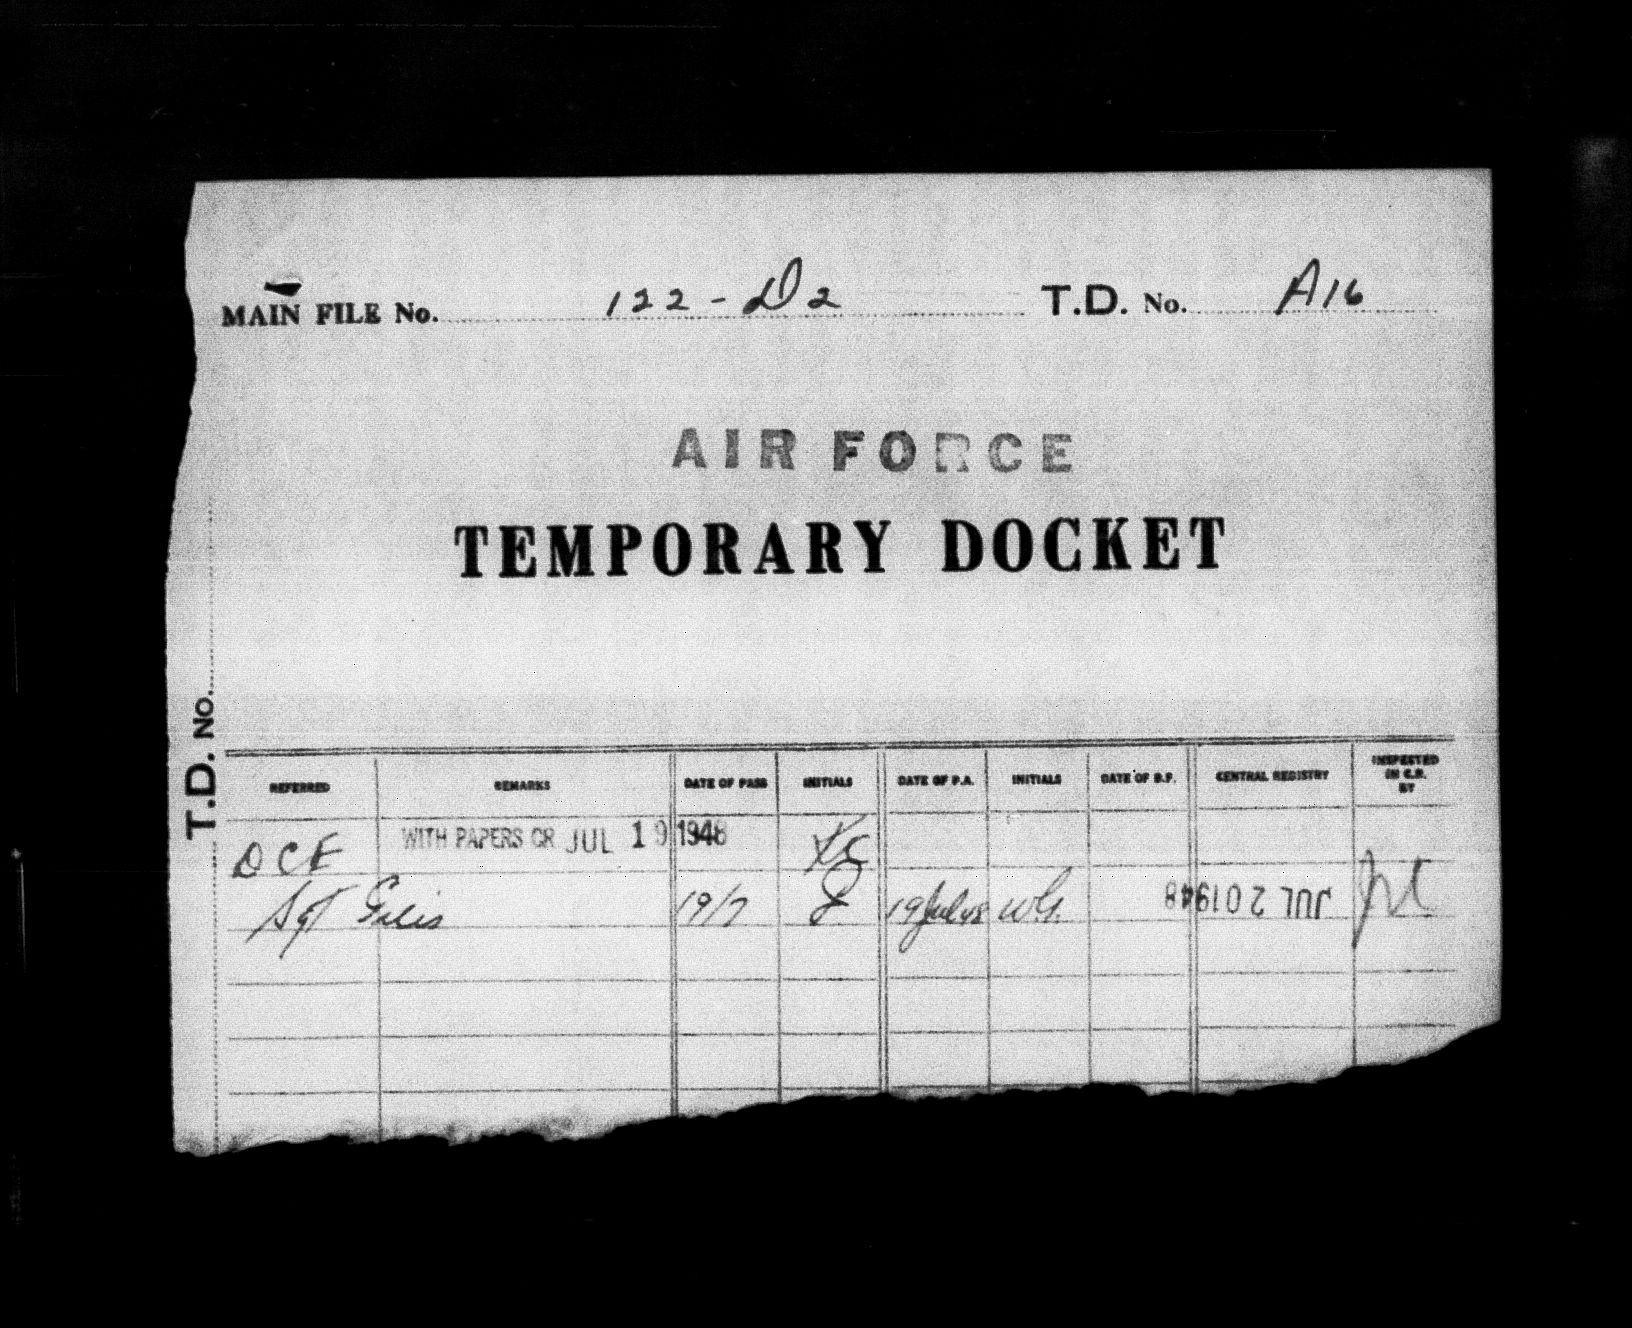 MAIN FILE No. 122-D2 T.D. No. A16
AIR FORCE
TEMPORARY DOCKET
T.D. No.
REFERRED REMARKS DATE OF PASS INITIALS DATE OF P.A. INITIALS DATE OF B.F. CENTRAL REGISTRY INSPECTED IN C.R. BY
DCE WITH PAPERS CR JUL 19 1948
Sgt 19/7 19 Jul 48 W.G. JUL 20 1948